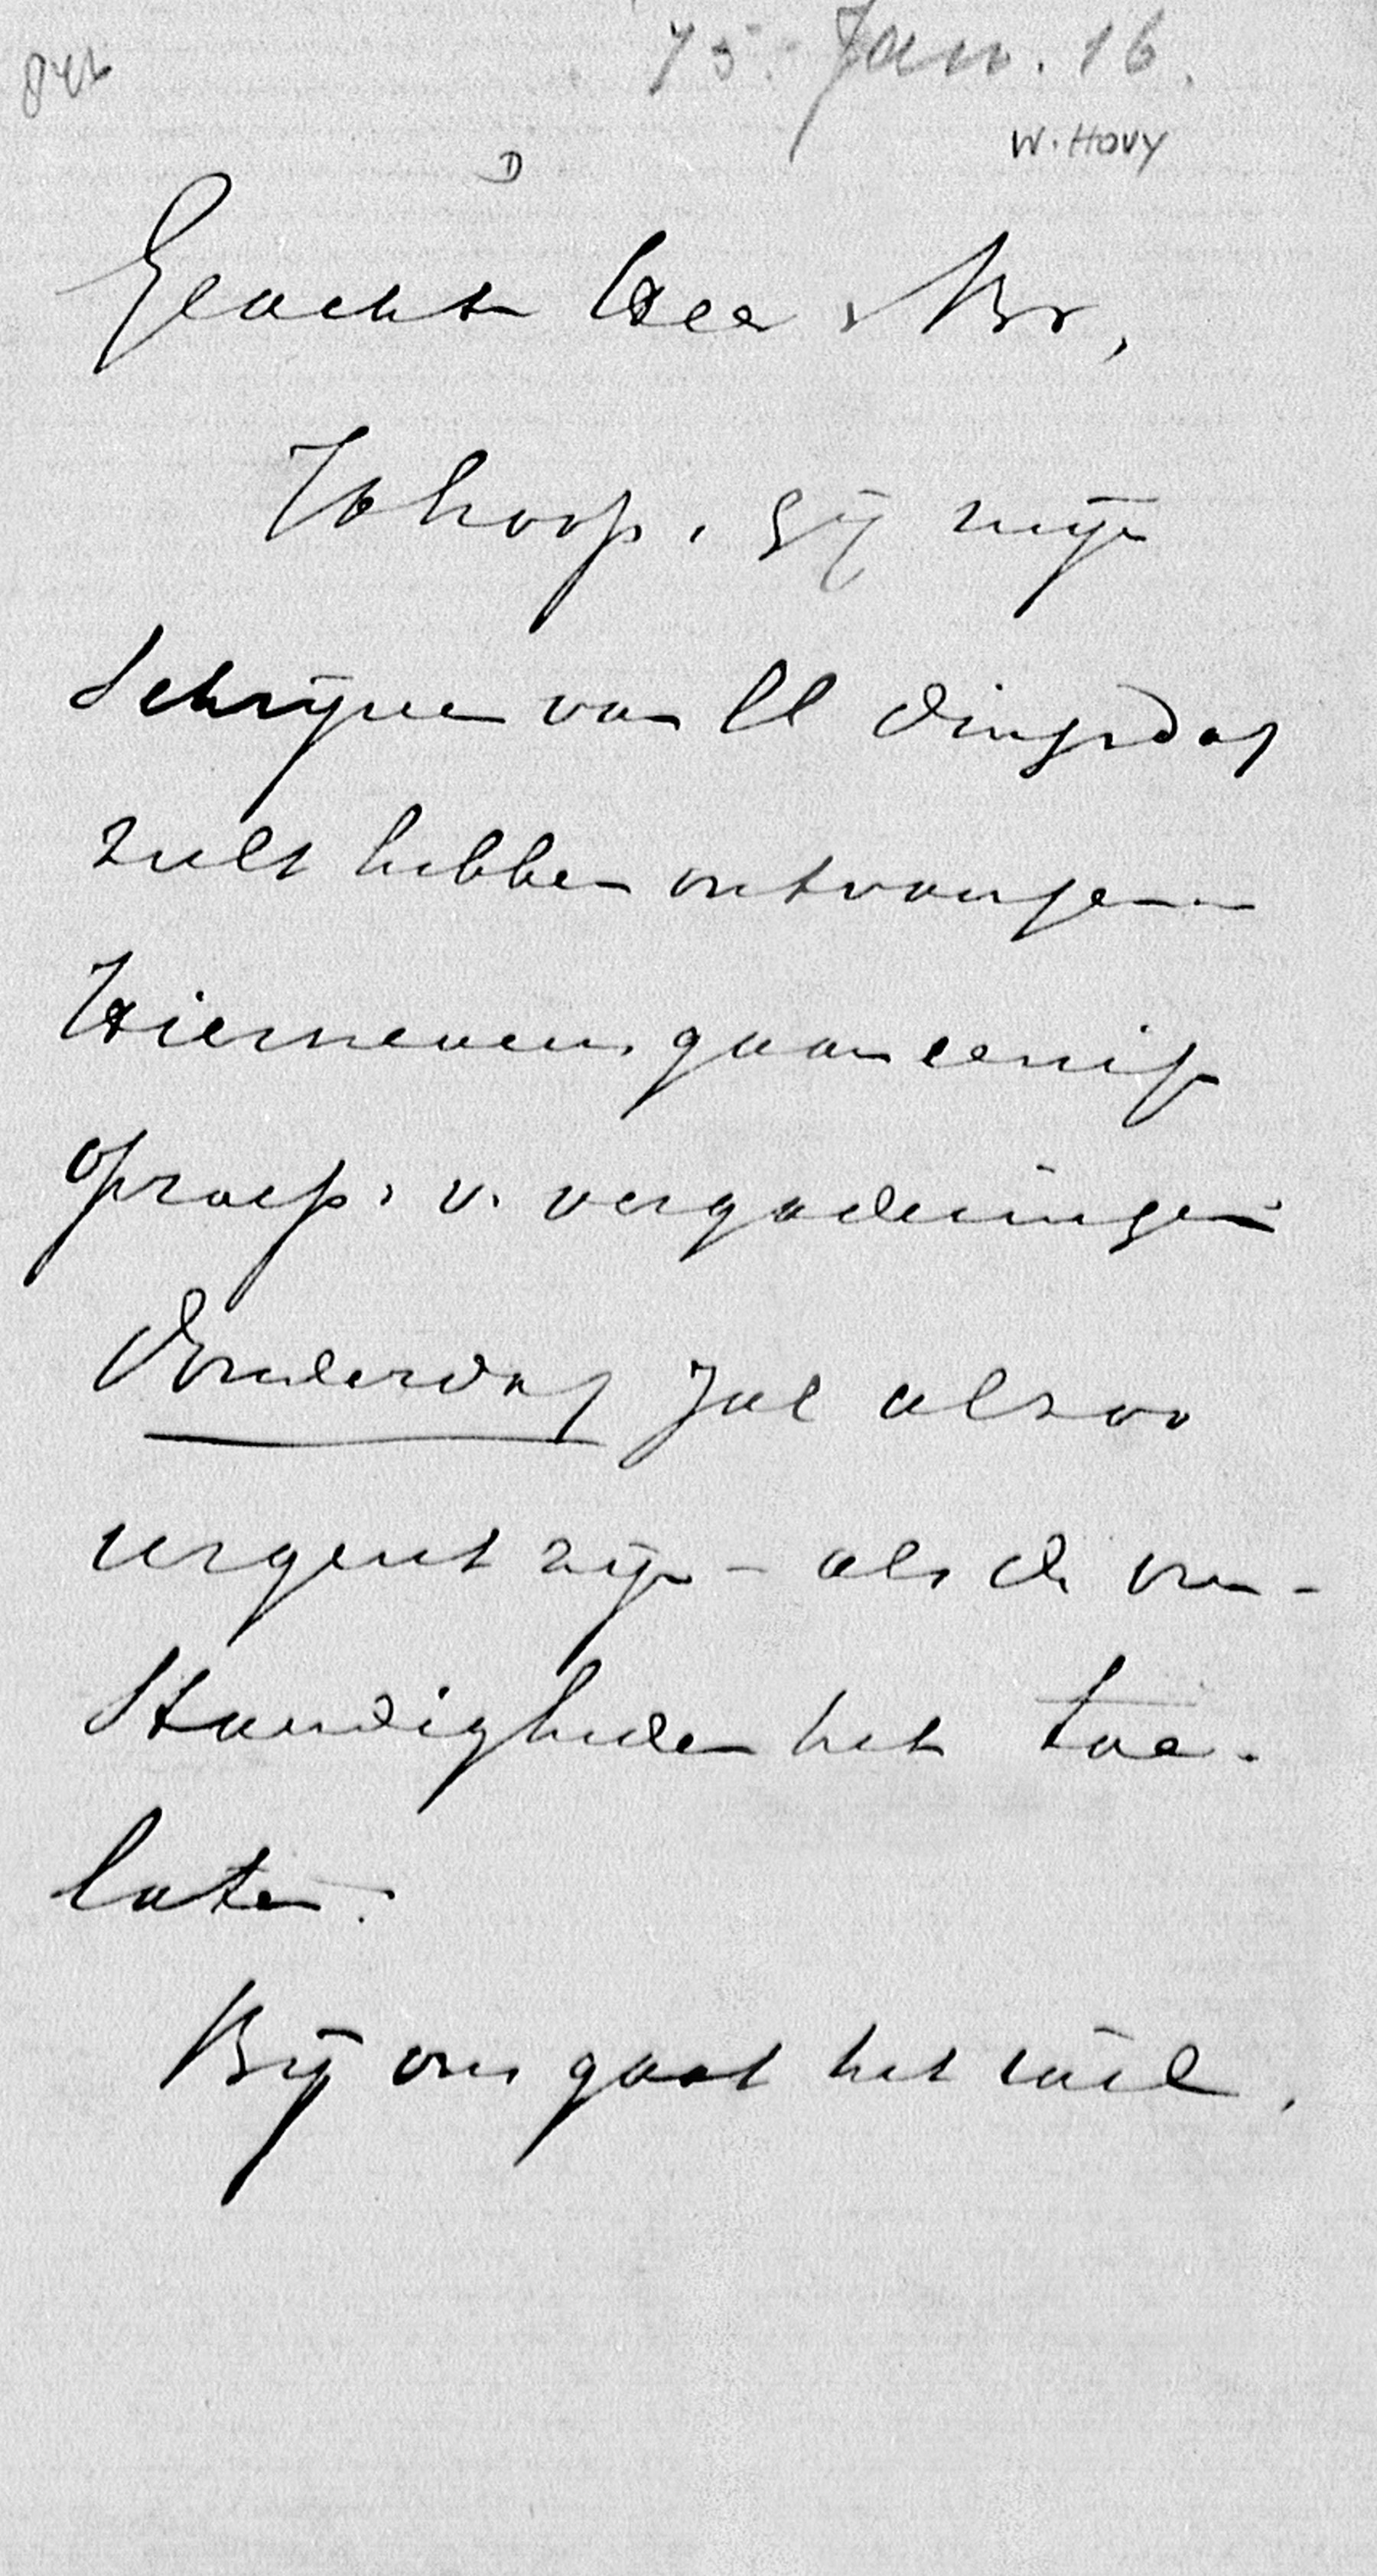 75. Jan. 16.
W. Hovy
D
Geachte Heer & Br,
Ik hoop, gij mijn
schrijven van ll dingsdag
zult hebben ontvangen
Hiernevens gaan eenige
oproep. v. vergaderingen
Donderdag zal alzoo
urgent zijn - als de om-
standigheden het toe-
laten.
Bij ons gaat het wèl,